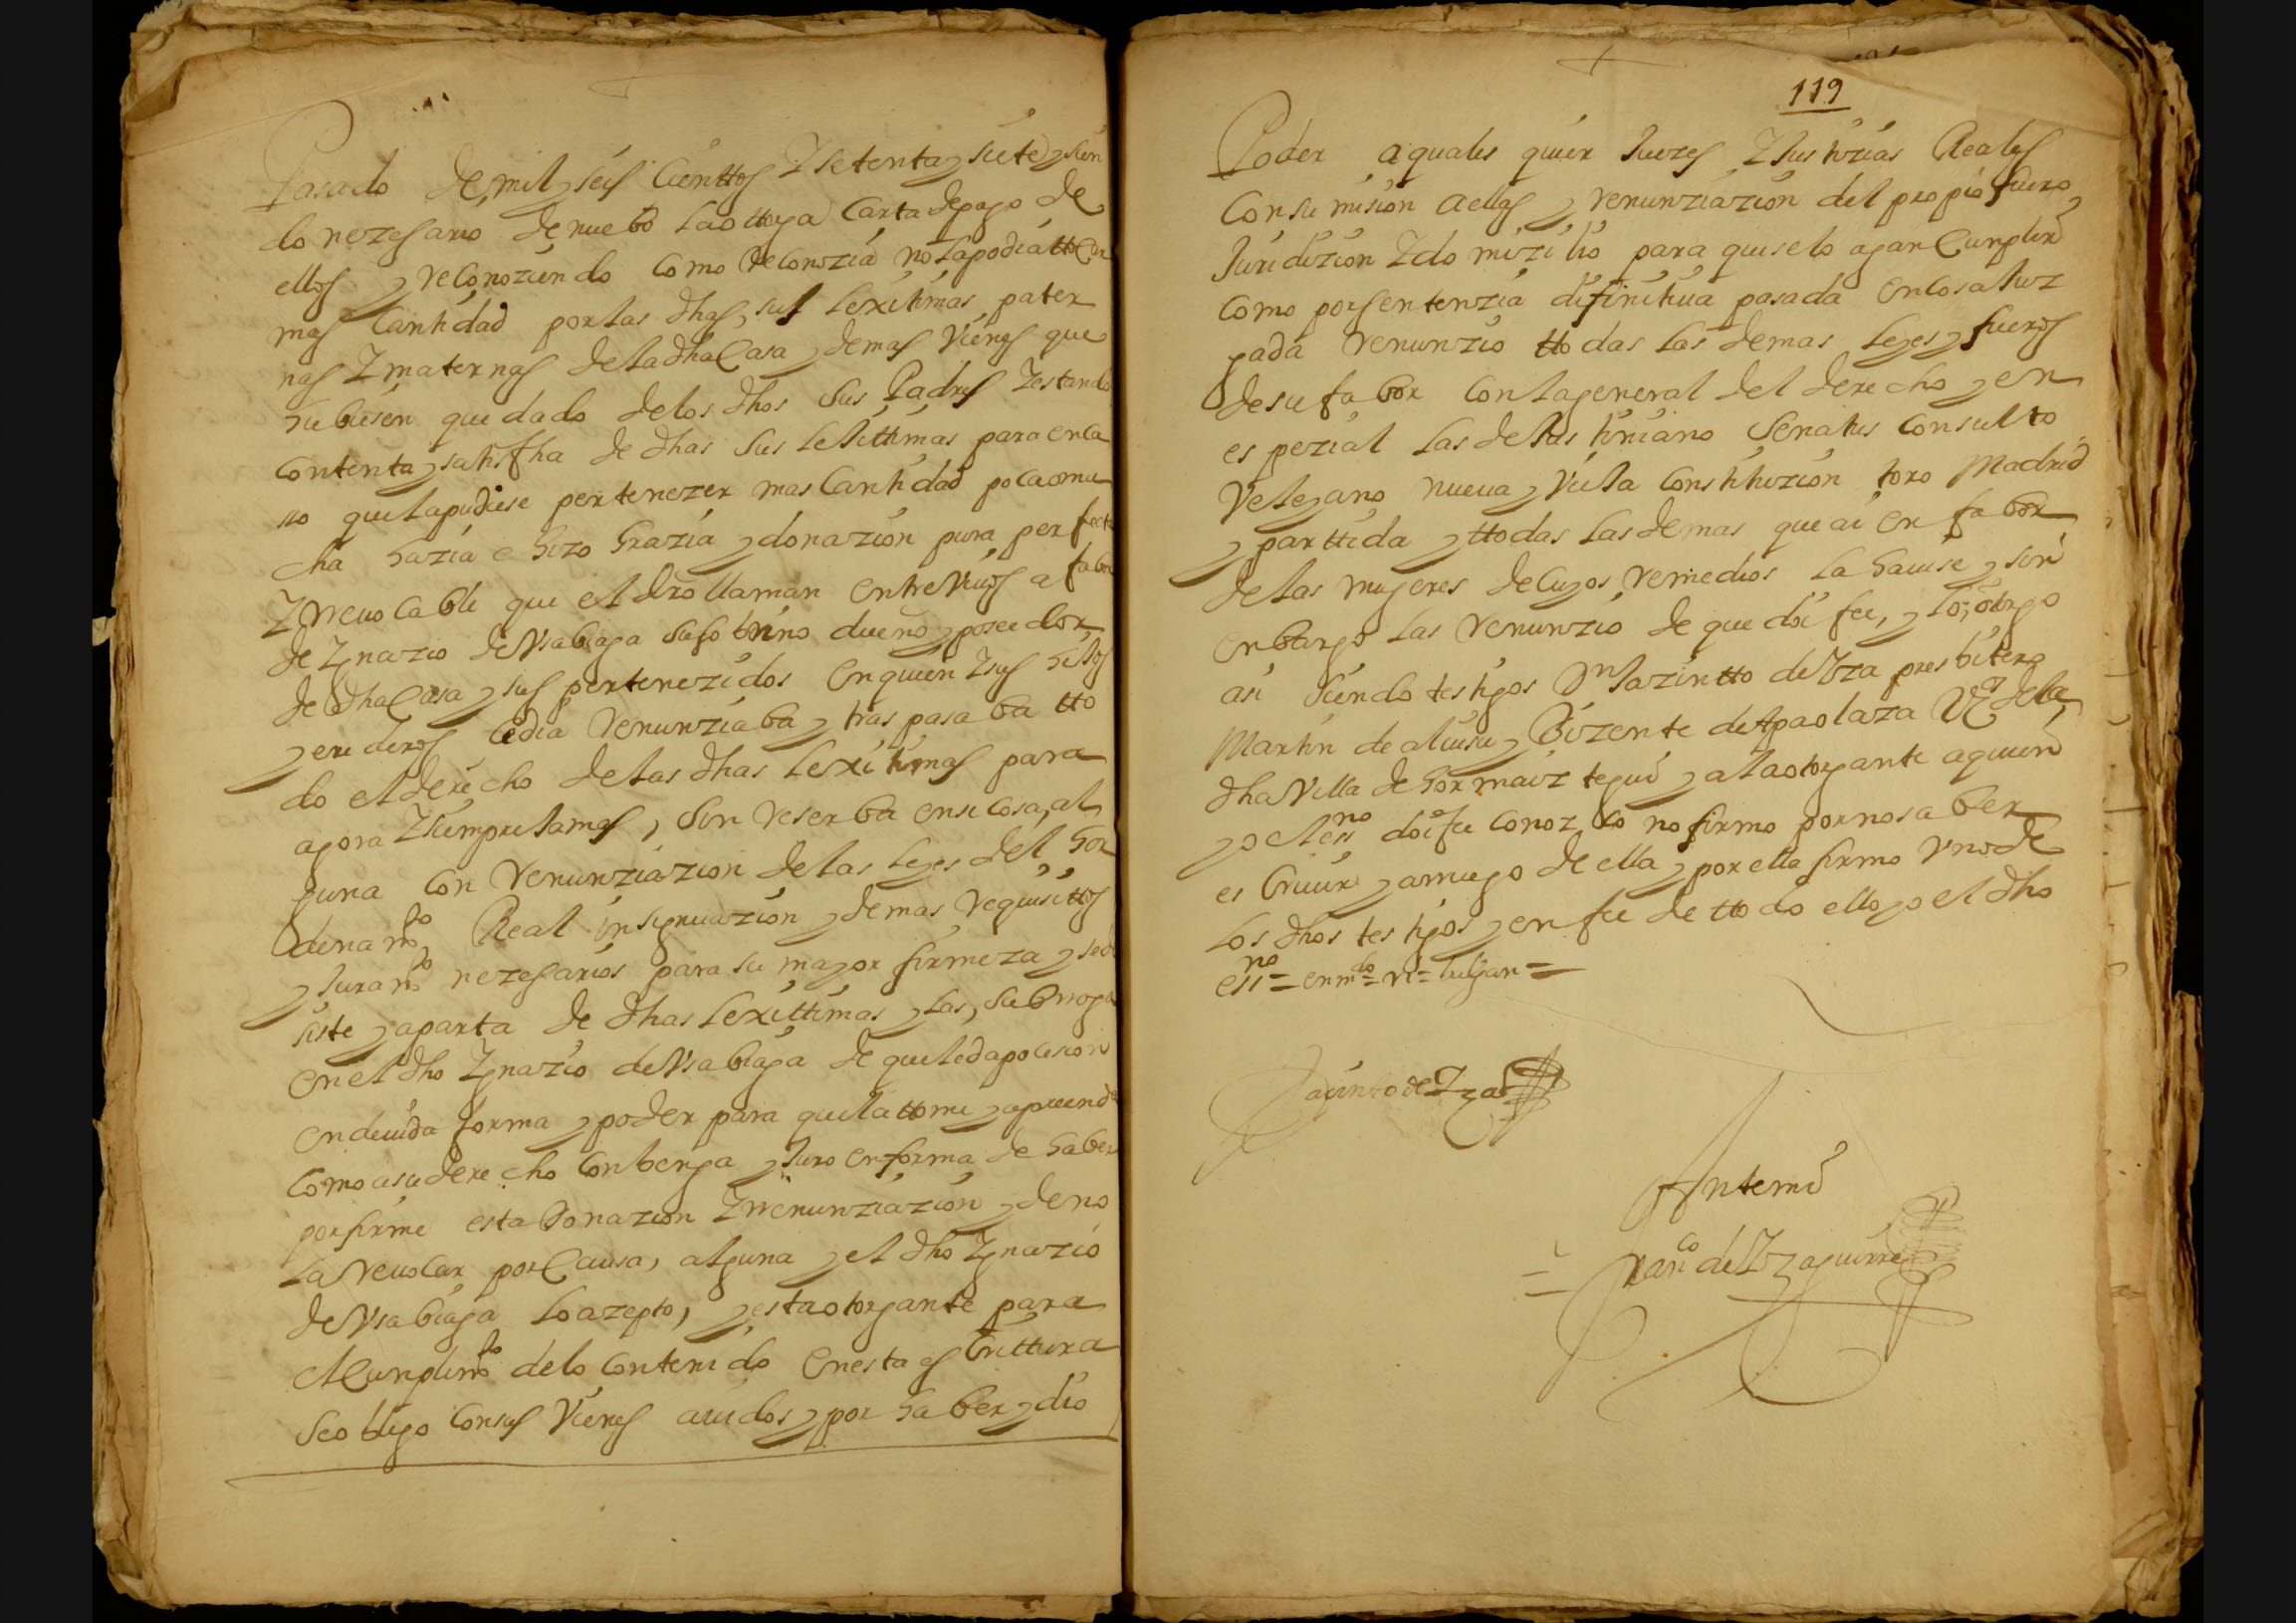 Pasado de mil y seis cienttos Y setenta y siete y sien
do nezesario de nuebo la ottorga Carta de pago de
ellos y reconoziendo como Reconozia no la podia ttocar
mas Cantidad por las dhas sus lexitimas pater
nas Y maternas de la dha Casa y demas Vienes que
hubiesen quedado de los dhos sus Padres Y estando
contenta y satisfha de dhas sus lexittimas para en ca
so que la pudiese pertenezer mas Cantidad poca o mu
cha hazia e hizo Grazia y donazion pura perfecta
Yrreuocable que el dro llaman entre Viuos a fabor
de Ygnazio de Vsabiaga su sobrino dueño y poseedor
de dha Casa y sus pertenezidos en quien Y sus hijos
y erederos Cedia renunziaba y traspasaba tto
do el derecho de las dhas lexitimas para
agora Y siempre Jamas, sin reserba en si cosa, al
guna con Renunziazion de las leyes del hor
denamto Real insignuazion y demas requisittos
y Juramto nezesarios para su mayor firmeza y se de
siste y aparta de dhas lexittimas y las, subrroga
en el dho Ygnazio de Vsabiaga de que le da posesion
en deuida forma y poder para que la ttome y apreenda
como a su derecho conbenga y Juro en forma de haber
por firme esta Donazion Y rrenunziazion y de no
la reuocar por Causa, alguna y el dho Ygnazio
de Vsabiaga lo azepto, y esta otorgante para
el Cunplimto de lo contenido en esta escrittura
se obligo con sus Vienes auidos y por haber y dio
119
Poder a quales quier Juezes Y Justizias Reales
con sumision a ellas y renunziazion del propio fuero
Juridizion Y domizilio para que se lo agan Cunplir
como por sentenzia difinitiua pasada en cosa Juz
gada renunzio ttodas las demas leyes y fueros
de su fabor con la general del derecho y en
espezial las de Justiniano Senatus Consulto
Veleyano nueua y Vieja constituzion toro Madrid
y parttida y ttodas las demas que ai en fabor
de las mugeres de cuyos remedios la hauise y sin
enbargo las renunzio de que doi fee, y lo, otorgo
asi siendo testigos Dn Jazintto de Yza presbitero
Martin de aluisu y Bizente de Apaolaza Vos de la
dha Villa de hormaiztegui y a la otorgante a quien
yo el essno doi fee conozco no firmo por no saber
escriuir y a ruego de ella y por ella firmo Vno de
los dhos testigos y en fee de ttodo ello yo el dho
essno = enmdo = vi = tulgan =
Jacinto de Yza
Ante mi
= Franco de Yzaguirre